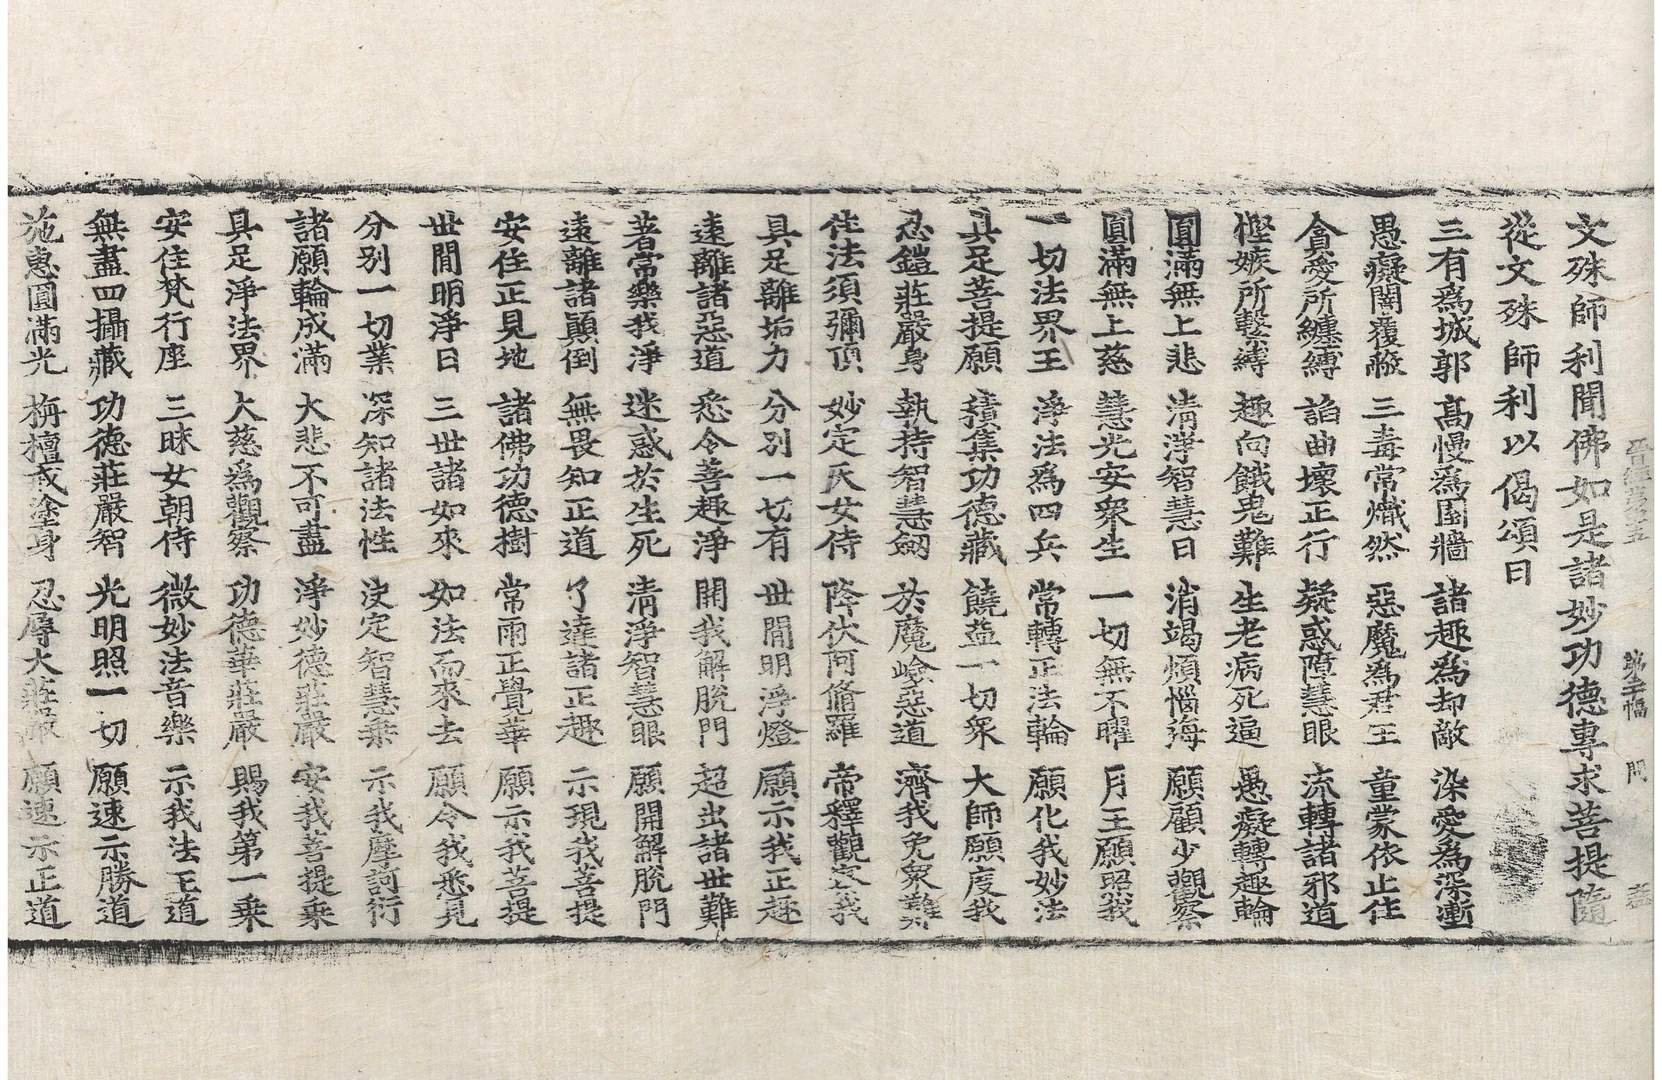 第二十幅
文殊師利聞佛如是諸妙功德專求菩提隨
從文殊師利以偈頌曰
三有爲城郭 高慢爲園牆 諸趣爲却敵 染愛爲深塹
愚癡闇覆蔽 三毒常熾然 惡魔爲君王 童蒙依止住
貪愛所纏縛 諂曲壞正行 疑惑障慧眼 流轉諸邪道
慳嫉所繫縛 趣向餓鬼難 生老病死逼 愚癡轉趣輪
圓滿無上悲 清淨智慧日 消竭煩惱海 願顧少觀察
圓滿無上慈 慧光安衆生 一切無不曜 月王願照我
一切法界王 淨法爲四兵 常轉正法輪 願化我妙法
具足菩提願 積集功德藏 饒益一切衆 大師願度我
忍鎧莊嚴身 執持智慧劒 於魔嶮惡道 濟我免衆難
住法須彌頂 妙定天女侍 降伏阿脩羅 帝釋觀察我
具足離垢力 分別一切有 世間明淨燈 願示我正趣
遠離諸惡道 悉令善趣淨 開我解脫門 超出諸世難
著常樂我淨 迷惑於生死 清淨智慧眼 願開解脫門
遠離諸顚倒 無畏知正道 了達諸正趣 示現我菩提
安住正見地 諸佛功德樹 常雨正覺華 願示我菩提
世間明淨日 三世諸如來 如法而來去 願令我悉見
分別一切業 深知諸法性 決定智慧乘 示我摩訶衍
諸願輪成滿 大悲不可盡 淨妙德莊嚴 安我菩提乘
具足淨法界 大慈爲觀察 功德華莊嚴 賜我第一乘
安住梵行座 三昧女朝侍 微妙法音樂 示我法王道
無盡四攝藏 功德莊嚴智 光明照一切 願速示勝道
施惠圓滿光 栴檀戒塗身 忍辱大莊嚴 願速示正道